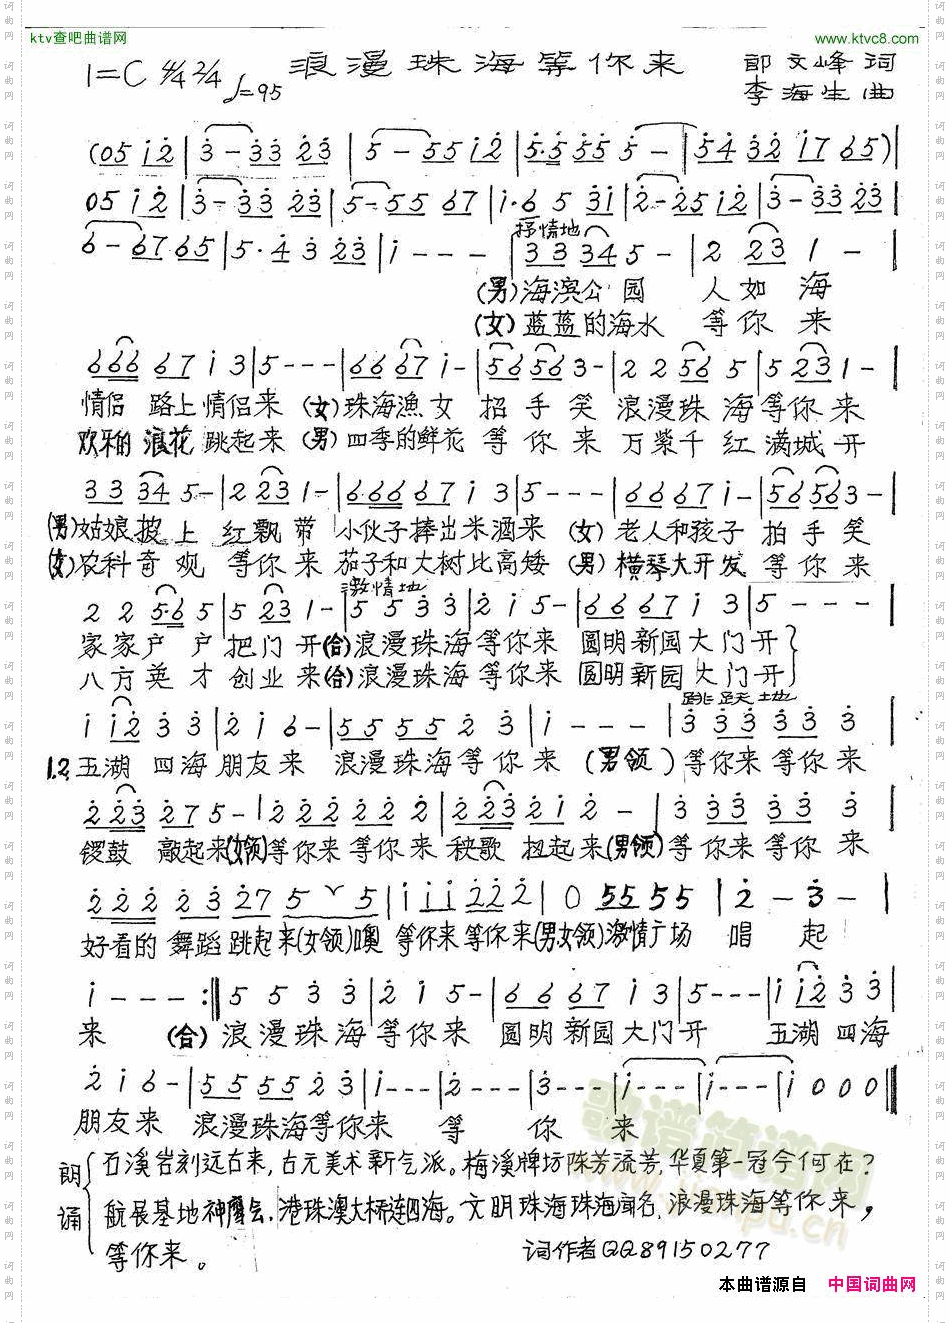 ktv查吧曲谱网 www.ktvc8.com
1=C 4/4 2/4 ♩=95 浪漫珠海等你来 郎文峰 词
李海生 曲
(05 i2 | 3-33 23 | 5-55 i2 | 5·5 55 5- | 54 32 i7 65) |
05 i2 | 3-33 23 | 5-55 67 | i·6 5 3i | 2-25 i2 | 3-33 23 |
抒情地
6-67 65 | 5·4 3 23 | i--- | 33 34 5- | 2 23 1- |
(男)海滨公园 人如海
(女)蓝蓝的海水 等你来
666 67 i 3 | 5--- | 66 67 i- | 56 56 3- | 2 2 56 5 | 5 23 1- |
情侣路上情侣来 (女)珠海漁女 招手笑 浪漫珠海等你来
欢乐的浪花跳起来 (男)四季的鲜花 等你来 万紫千红满城开
33 34 5- | 2 23 1- | 6·6 66 67 i 3 | 5--- | 66 67 i- | 56 56 3- |
(男)姑娘披上红飘带 小伙子捧出米酒来 (女)老人和孩子拍手笑
(女)农科奇观等你来 茄子和大树比高矮 (男)横琴大开发等你来
激情地
2 2 56 5 | 5 23 1- | 5 5 3 3 | 2 i 5- | 66 67 i 3 | 5--- |
家家户户把门开(合)浪漫珠海等你来 圆明新园大门开
八方英才创业来(合)浪漫珠海等你来 圆明新园大门开
跳跃地
i i2 3 3 | 2 i 6- | 55 55 2 3 | i--- | 33 33 33 3 |
1.2.五湖四海朋友来 浪漫珠海等你来 (男领)等你来等你来
2 23 27 5- | 22 22 2 2 | 2 23 2i 2- | 3 33 33 3 |
锣鼓敲起来(女领)等你来等你来 秧歌扭起来(男领)等你来等你来
2 22 23 27 5 5 | i ii 22 2 | 0 55 55 | 2-3- |
好看的舞蹈跳起来(女领)噢 等你来等你来(男女领)激情广场唱起
i---:‖ 5 5 3 3 | 2 i 5- | 66 67 i 3 | 5--- | i i2 3 3 |
来 (合)浪漫珠海等你来 圆明新园大门开 五湖四海
2 i 6- | 55 55 2 3 | i--- | 2--- | 3--- | i--- | i--- | i 0 0 0 ‖
朋友来 浪漫珠海等你来 等你来
朗诵 石溪岩刻远古来,古元美术新气派。梅溪牌坊陈芳流芳,华夏第一冠今何在?
航展基地神鹰会,港珠澳大桥连四海。文明珠海珠海闻名,浪漫珠海等你来,
等你来。 词作者QQ89150277
本曲谱源自 中国词曲网